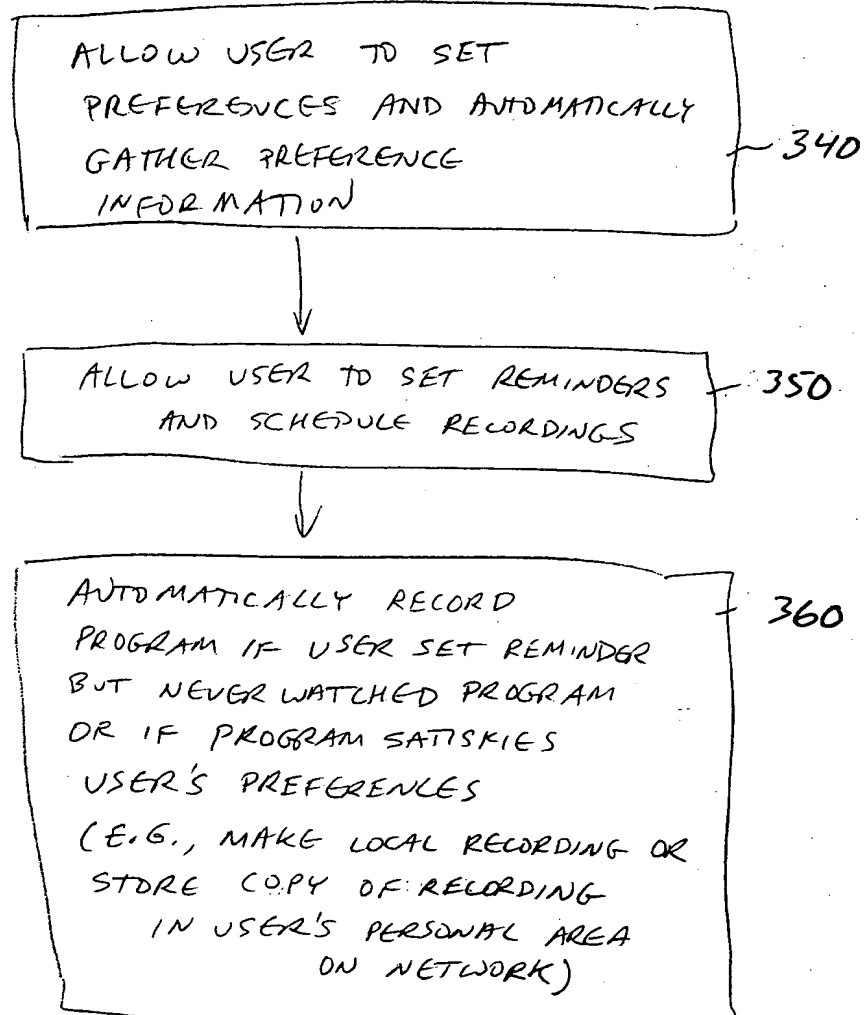 ALLOW USER TO SET
PREFERENCES AND AUTOMATICALLY
GATHER PREFERENCE
INFORMATION
340
ALLOW USER TO SET REMINDERS
AND SCHEDULE RECORDINGS
350
AUTOMATICALLY RECORD
PROGRAM IF USER SET REMINDER
BUT NEVER WATCHED PROGRAM
OR IF PROGRAM SATISKIES
USER'S PREFERENCES
(E.G., MAKE LOCAL RECORDING OR
STORE COPY OF RECORDING
IN USER'S PERSONAL AREA
ON NETWORK)
360